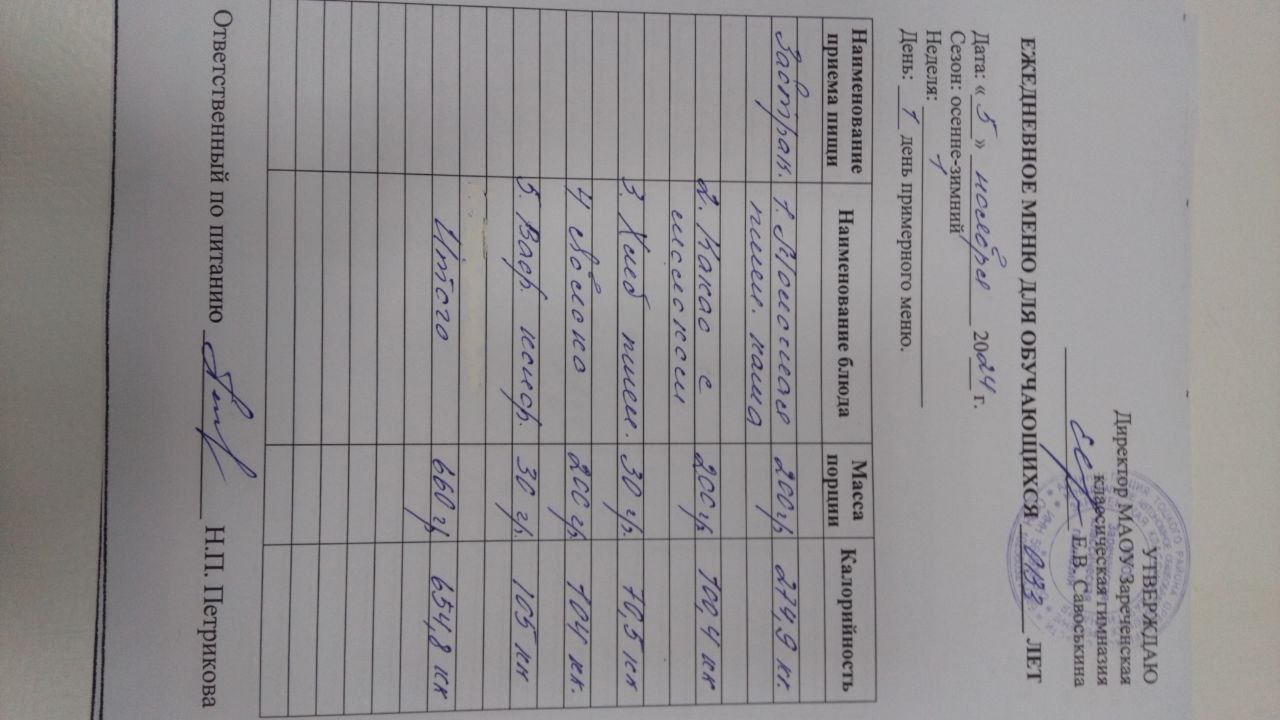 УТВЕРЖДАЮ
Директор МАОУ Зареченская
классическая гимназия
Е.В. Савоськина
ЕЖЕДНЕВНОЕ МЕНЮ ДЛЯ ОБУЧАЮЩИХСЯ ОВЗ ЛЕТ
Дата: « 5 » ноября 2024 г.
Сезон: осенне-зимний
Неделя: 1
День: 1 день примерного меню.
Наименование приема пищи Наименование блюда Масса порции Калорийность
Завтрак. 1. Молочная 200гр 274,9 кк.
пшен. каша
2. Какао с 200гр 100,4 кк
молоком
3. Хлеб пшен. 30 гр. 70,5 кк
4 Яблоко 200гр 104 кк.
5. Ваф. 30 гр. 105 кк
Итого 660 гр 654,8 кк
Ответственный по питанию Н.П. Петрикова